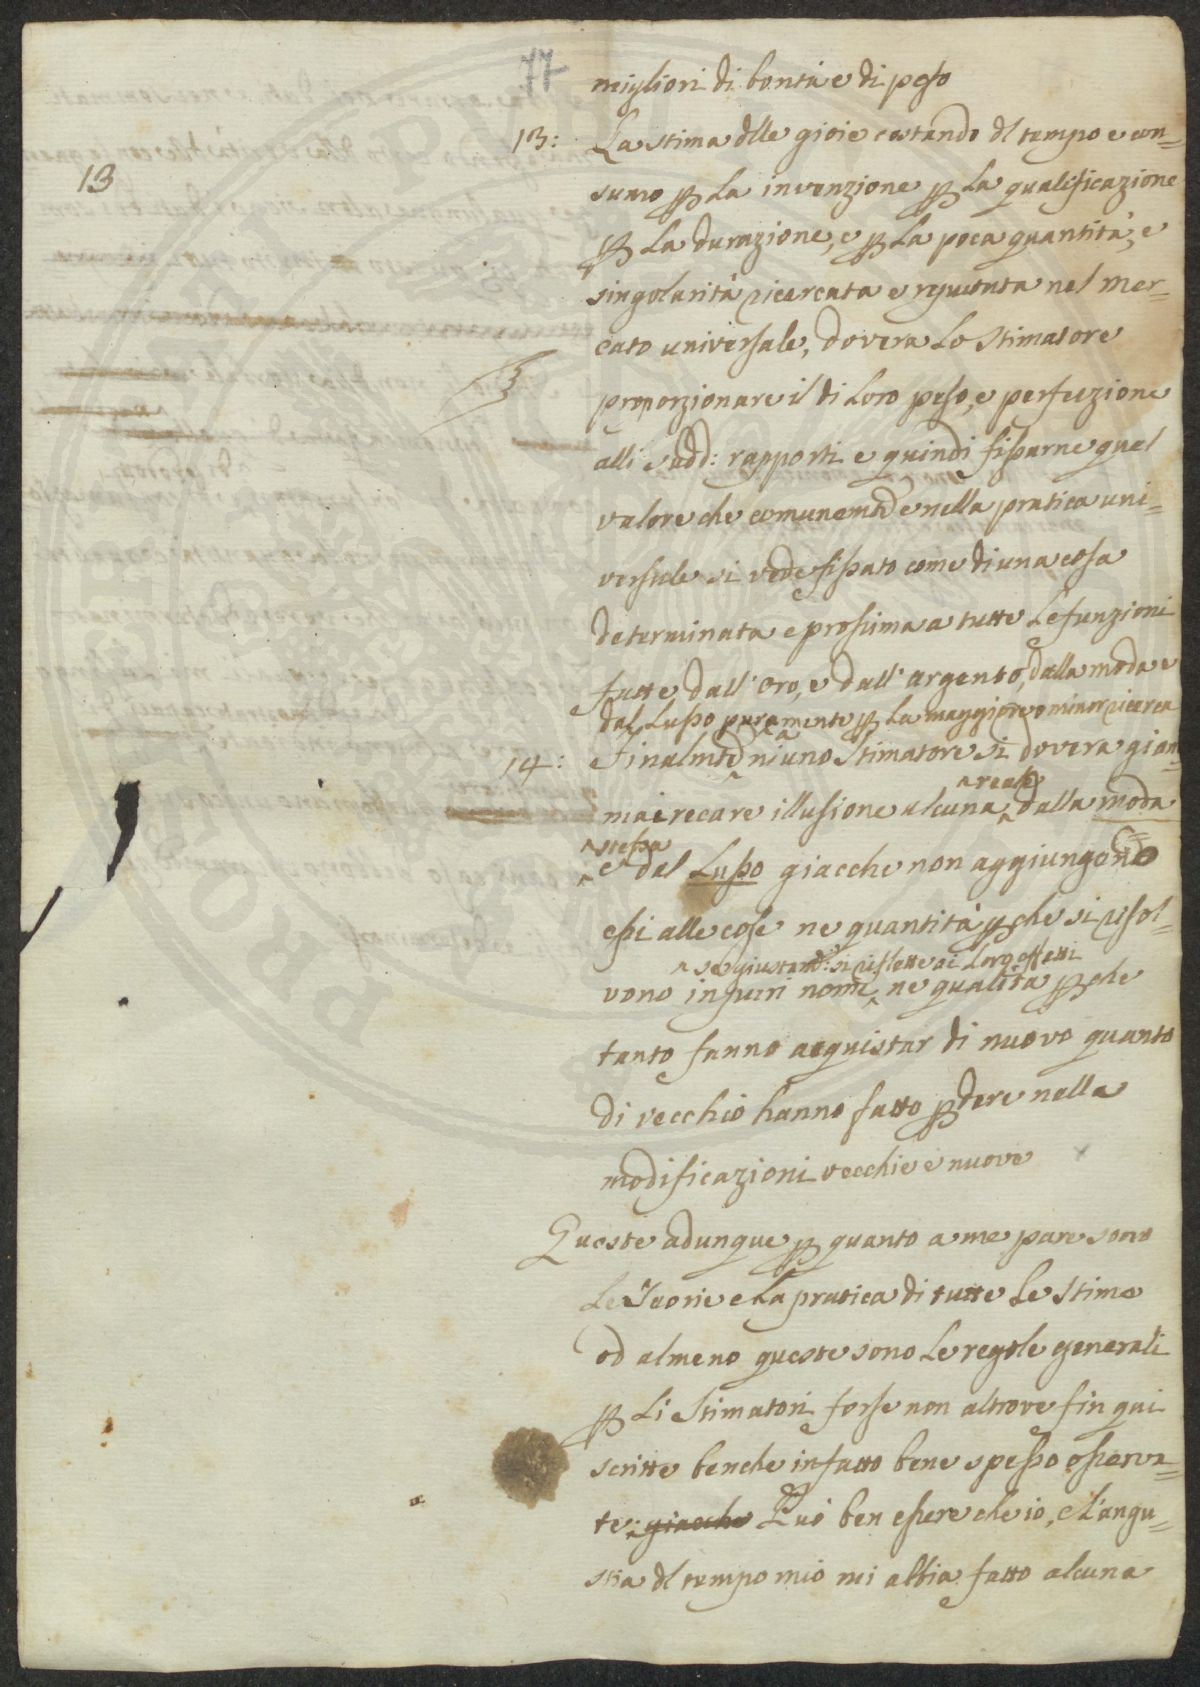 77
migliori di bontà e di peso
13: La stima dlle gioie costando dl tempo e con=
13
sumo p La invenzione p La qualificazione
p La durazione, e p La poca quantità, e
singolarità ricercata e reputata nel mer=
cato universale, dovera Lo Stimatore
proporzionare il di Loro peso, e perfezione
alli sudd: rapporti e quindi fissarne quel
valore che comunemte e nella pratica uni=
versale si vede fissato come di una cosa
determinata e prossima a tutte Le funzioni
fatte dall' oro, e dall' argento, dalla moda e
dal Lusso puramente p La maggiore o minor ricerca
14: Finalmte niuno Stimatore si dovera giam
mai recare illusione alcuna reale dalla moda
stessa
e dal Lusso giacche non aggiungono
essi alle cose ne quantità pche si risol=
se giustamte: si riflette ai Loro effetti
vono in puri nomi ne qualità pche
tanto fanno acquistar di nuovo quanto
di vecchio hanno fatto pdere nella
modificazioni vecchie e nuove
Queste adunque p quanto a me pare sono
Le Teorie e La pratica di tutte Le Stime
od almeno queste sono Le regole generali
p Li Stimatori forse non altrove fin qui
scritte benche in fatto bene spesso osserva=
te: giacche Può ben essere che io, e L'angu=
stia dl tempo mio mi abbia fatto alcuna